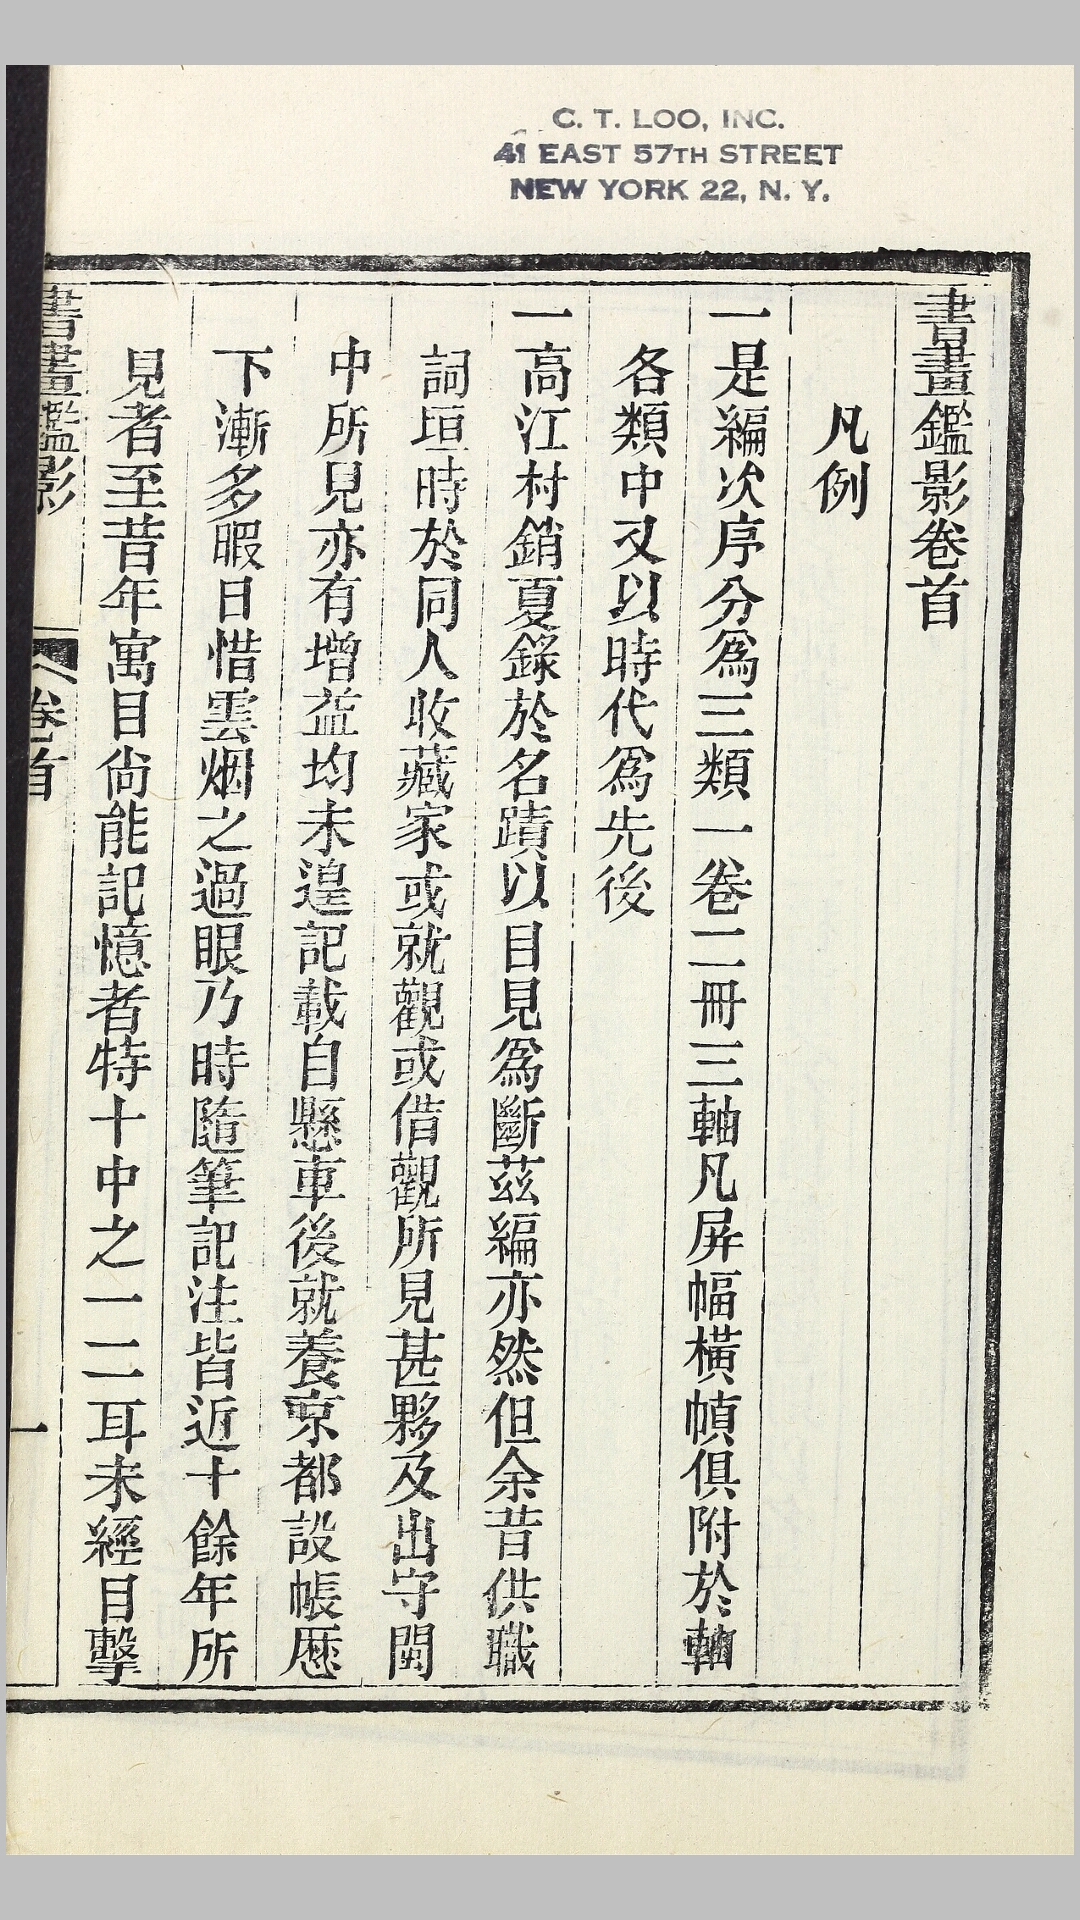 C. T. LOO, INC.
41 EAST 57TH STREET
NEW YORK 22, N. Y.
書畫鑑影卷首
凡例
一是編次序分爲三類一卷二冊三軸凡屛幅橫幀俱附於軸
各類中又以時代爲先後
一高江村銷夏錄於名蹟以目見爲斷茲編亦然但余昔供職
詞垣時於同人收藏家或就觀或借觀所見甚夥及出守閩
中所見亦有增益均未遑記載自懸車後就養京都設帳歷
下漸多暇日惜雲烟之過眼乃時隨筆記注皆近十餘年所
見者至昔年寓目尙能記憶者特十中之一二耳未經目擊
書畫鑑影
卷首
一